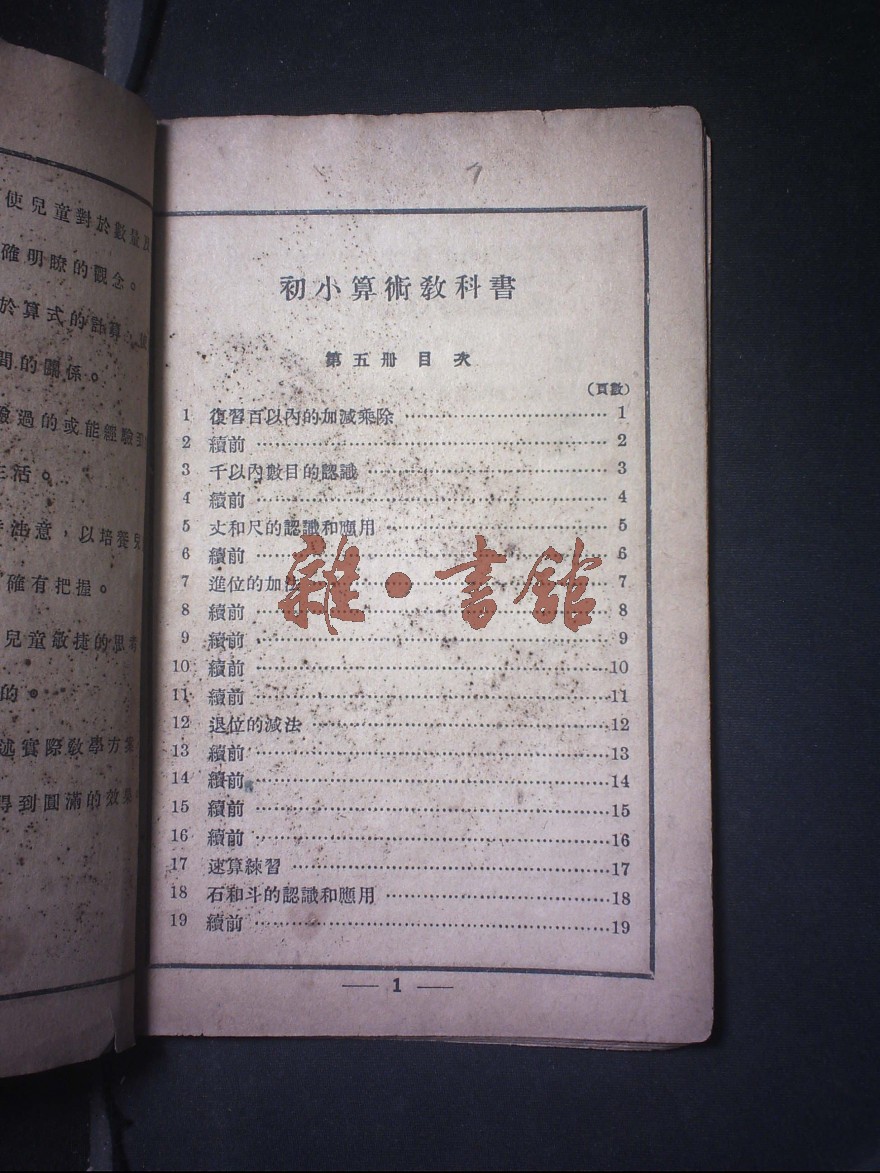 使兒童對於數
確明瞭的觀念。
於算式的計算
間的關係。
過的或能經驗
生活。
注意，以培養兒
確有把握。
兒童敏捷的思
的。
述實際教學方
得到圓滿的效果
初小算術教科書
第五册目次
(頁數)
1 復習百以內的加減乘除 …… 1
2 續前 …… 2
3 千以內數目的認識 …… 3
4 續前 …… 4
5 丈和尺的認識和應用 …… 5
6 續前 …… 6
7 進位的加法 …… 7
8 續前 …… 8
9 續前 …… 9
10 續前 …… 10
11 續前 …… 11
12 退位的減法 …… 12
13 續前 …… 13
14 續前 …… 14
15 續前 …… 15
16 續前 …… 16
17 速算練習 …… 17
18 石和斗的認識和應用 …… 18
19 續前 …… 19
— 1 —
雜·書館